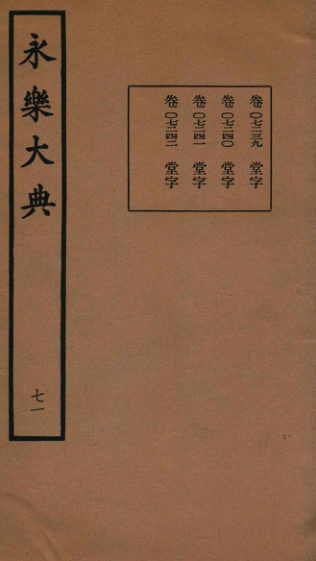 永樂大典
七一
卷〇七二三九 堂字
卷〇七二四〇 堂字
卷〇七二四一 堂字
卷〇七二四二 堂字